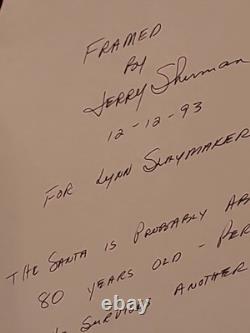 FRAMED
BY
Jerry Sherman
12-12-93
FOR LYNN SLAYMAKER
THE SANTA IS PROBABLY AB
80 YEARS OLD - PER
SURVIVES ANOTHER
ebay